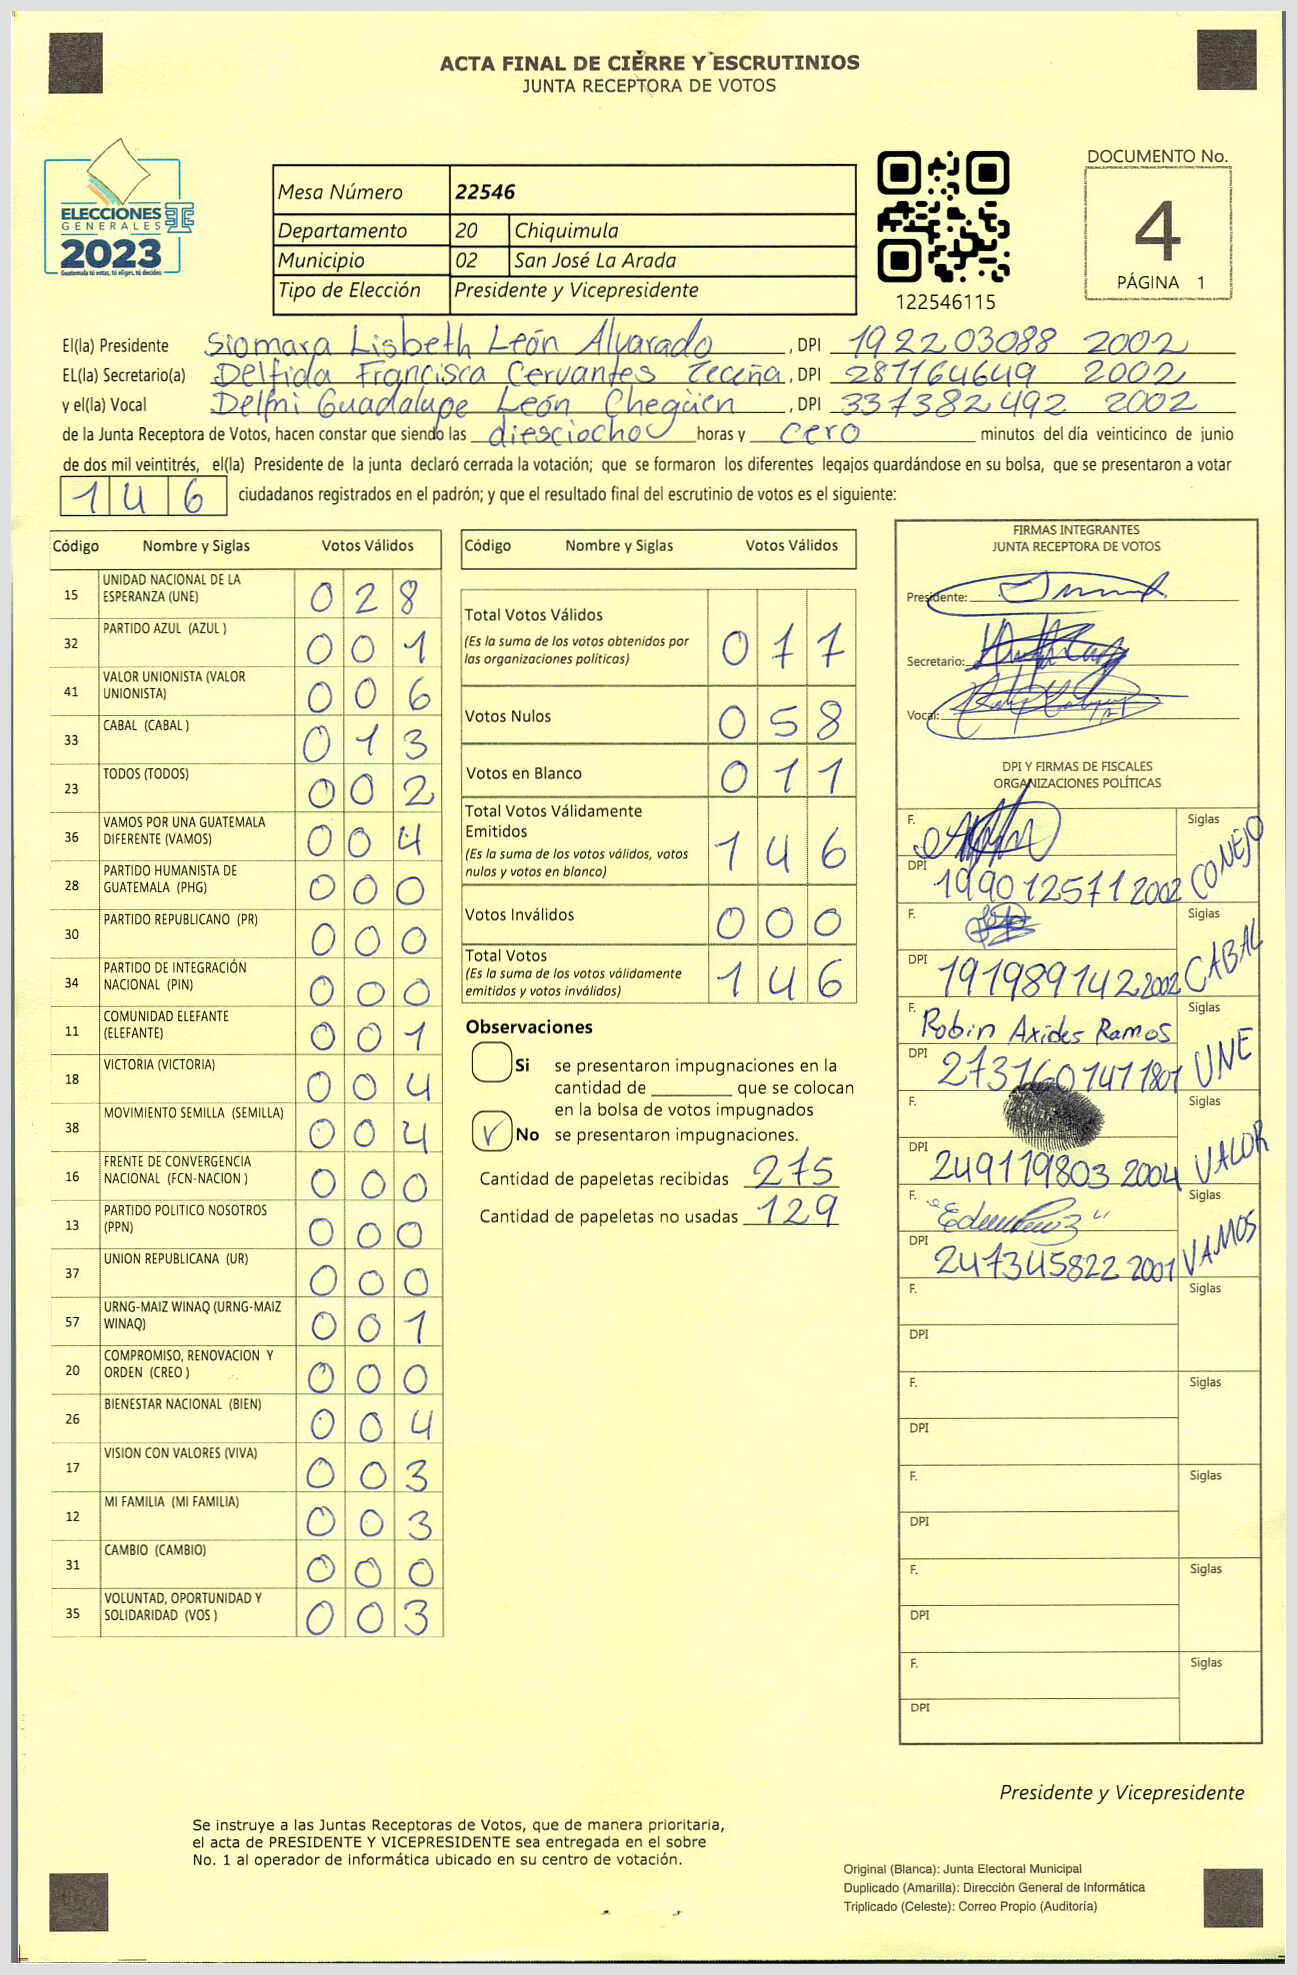 ACTA FINAL DE CIERRE Y ESCRUTINIOS
JUNTA RECEPTORA DE VOTOS
ELECCIONES
GENERALES
2023
Guatemala tú votas, tú eliges, tú decides
Mesa Número 22546
Departamento 20 Chiquimula
Municipio 02 San José La Arada
Tipo de Elección Presidente y Vicepresidente
122546115
DOCUMENTO No.
4
PÁGINA 1
El(la) Presidente Siomara Lisbeth León Alvarado, DPI 192203088 2002
EL(la) Secretario(a) Delfida Francisca Cervantes Teceña, DPI 287164649 2002
y el(la) Vocal Delmi Guadalupe León Chegüen, DPI 337382492 2002
de la Junta Receptora de Votos, hacen constar que siendo las diesciocho horas y cero minutos del día veinticinco de junio
de dos mil veintitrés, el(la) Presidente de la junta declaró cerrada la votación; que se formaron los diferentes legajos guardándose en su bolsa, que se presentaron a votar
146 ciudadanos registrados en el padrón; y que el resultado final del escrutinio de votos es el siguiente:
Código Nombre y Siglas Votos Válidos
15 UNIDAD NACIONAL DE LA ESPERANZA (UNE) 028
32 PARTIDO AZUL (AZUL ) 001
41 VALOR UNIONISTA (VALOR UNIONISTA) 006
33 CABAL (CABAL ) 013
23 TODOS (TODOS) 002
36 VAMOS POR UNA GUATEMALA DIFERENTE (VAMOS) 004
28 PARTIDO HUMANISTA DE GUATEMALA (PHG) 000
30 PARTIDO REPUBLICANO (PR) 000
34 PARTIDO DE INTEGRACIÓN NACIONAL (PIN) 000
11 COMUNIDAD ELEFANTE (ELEFANTE) 001
18 VICTORIA (VICTORIA) 004
38 MOVIMIENTO SEMILLA (SEMILLA) 004
16 FRENTE DE CONVERGENCIA NACIONAL (FCN-NACION ) 000
13 PARTIDO POLITICO NOSOTROS (PPN) 000
37 UNION REPUBLICANA (UR) 000
57 URNG-MAIZ WINAQ (URNG-MAIZ WINAQ) 001
20 COMPROMISO, RENOVACION Y ORDEN (CREO ) 000
26 BIENESTAR NACIONAL (BIEN) 004
17 VISION CON VALORES (VIVA) 003
12 MI FAMILIA (MI FAMILIA) 003
31 CAMBIO (CAMBIO) 000
35 VOLUNTAD, OPORTUNIDAD Y SOLIDARIDAD (VOS ) 003
Código Nombre y Siglas Votos Válidos
Total Votos Válidos 077
(Es la suma de los votos obtenidos por
las organizaciones políticas)
Votos Nulos 058
Votos en Blanco 011
Total Votos Válidamente
Emitidos 146
(Es la suma de los votos válidos, votos
nulos y votos en blanco)
Votos Inválidos 000
Total Votos 146
(Es la suma de los votos válidamente
emitidos y votos inválidos)
Observaciones
Si se presentaron impugnaciones en la
cantidad de ________ que se colocan
en la bolsa de votos impugnados
No se presentaron impugnaciones.
Cantidad de papeletas recibidas 275
Cantidad de papeletas no usadas 129
FIRMAS INTEGRANTES
JUNTA RECEPTORA DE VOTOS
Presidente:
Secretario:
Vocal:
DPI Y FIRMAS DE FISCALES
ORGANIZACIONES POLÍTICAS
F. Siglas
DPI 199012571 2002 CONEJO
F. Siglas
DPI 191989142 2002 CABAL
F. Robin Axides Ramos Siglas
DPI 273160141 1801 UNE
F. Siglas
DPI 249119803 2004 VALOR
F. Siglas
DPI 247345822 2001 VAMOS
F. Siglas
DPI
F. Siglas
DPI
F. Siglas
DPI
F. Siglas
DPI
F. Siglas
DPI
Presidente y Vicepresidente
Se instruye a las Juntas Receptoras de Votos, que de manera prioritaria,
el acta de PRESIDENTE Y VICEPRESIDENTE sea entregada en el sobre
No. 1 al operador de informática ubicado en su centro de votación.
Original (Blanca): Junta Electoral Municipal
Duplicado (Amarilla): Dirección General de Informática
Triplicado (Celeste): Correo Propio (Auditoría)